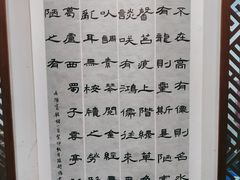 不在高有僊則名水
有龍則靈斯是陋
馨苔痕上階綠草
談咲有鴻儒往
調素琴閱金經
亂耳無案牘之勞
葛廬西蜀子雲亭
陋之有